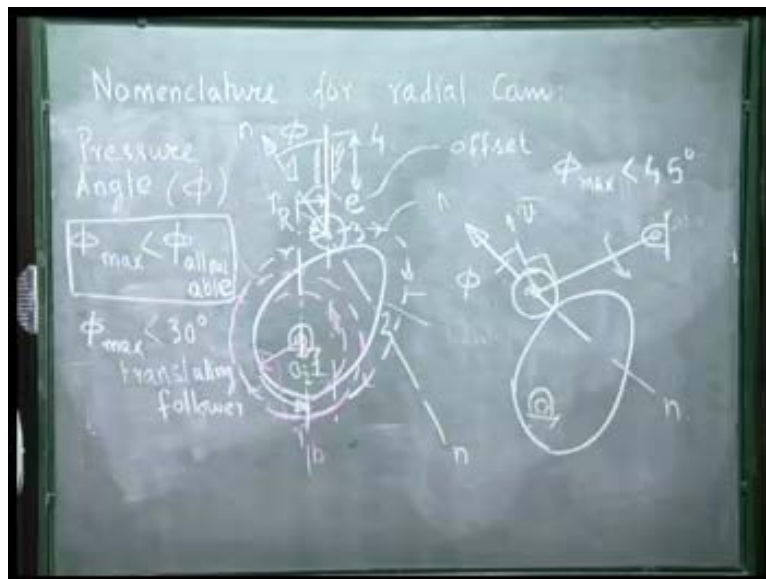 Nomenclature for radial Cam:
Pressure
Angle (φ)
φmax < φallow
able
φmax < 30°
translating
follower
n
φ
4
offset
e
rR
3
n
2
O
1
rb
n
φmax < 45°
v
φ
n